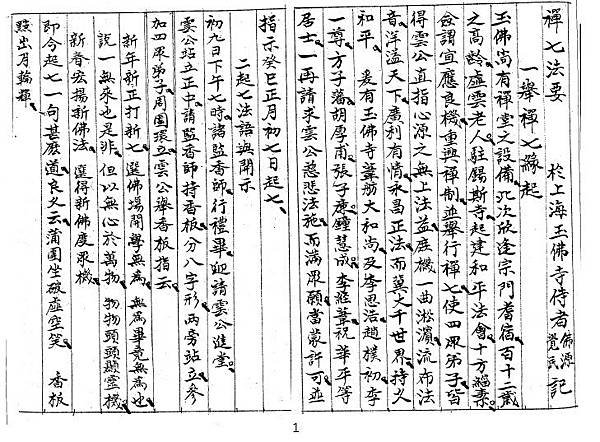 禪七法要　於上海玉佛寺侍者佛源覺民記
一舉禪七緣起
玉佛尚有禪堂之設備，此次欣逢宗門耆宿百十二歲
之高齡虛雲老人，駐錫斯寺起建和平法會，十方緇素，
僉謂宜應良機，重興禪制，並舉行禪七，使四眾弟子皆
得雲公直指心源之無上法益，庶機一曲淞濱，流布法
音，洋溢天下，廣利有情，永昌正法，而冀大千世界，持久
和平。　爰有玉佛寺葦舫大和尚，及李思浩，趙樸初，李
一尊，方子藩，胡厚甫，張子廉，鍾慧成，李經葦，祝華平等
居士，一再請求雲公慈悲法施，而滿眾願，當蒙許可，並
指示癸巳正月初七日起七，
二起七法語與開示
初九日下午七時，諸監香師行禮畢，迎請雲公進堂。
雲公站立正中，請監香師持香板，分八字形，兩旁站立，參
加四眾弟子，周圍環立，雲公舉香板指云，
新年新正打新七　選佛場開學無為，無為畢竟無為也
說一無來也是非，但以無心於萬物，物物頭頭顯靈機，
新春宏揚新佛法，選得新佛度眾機，
即今起七一句甚麼道，良久云，蒲團坐破虛空笑，　香板
點出月輪輝，
1